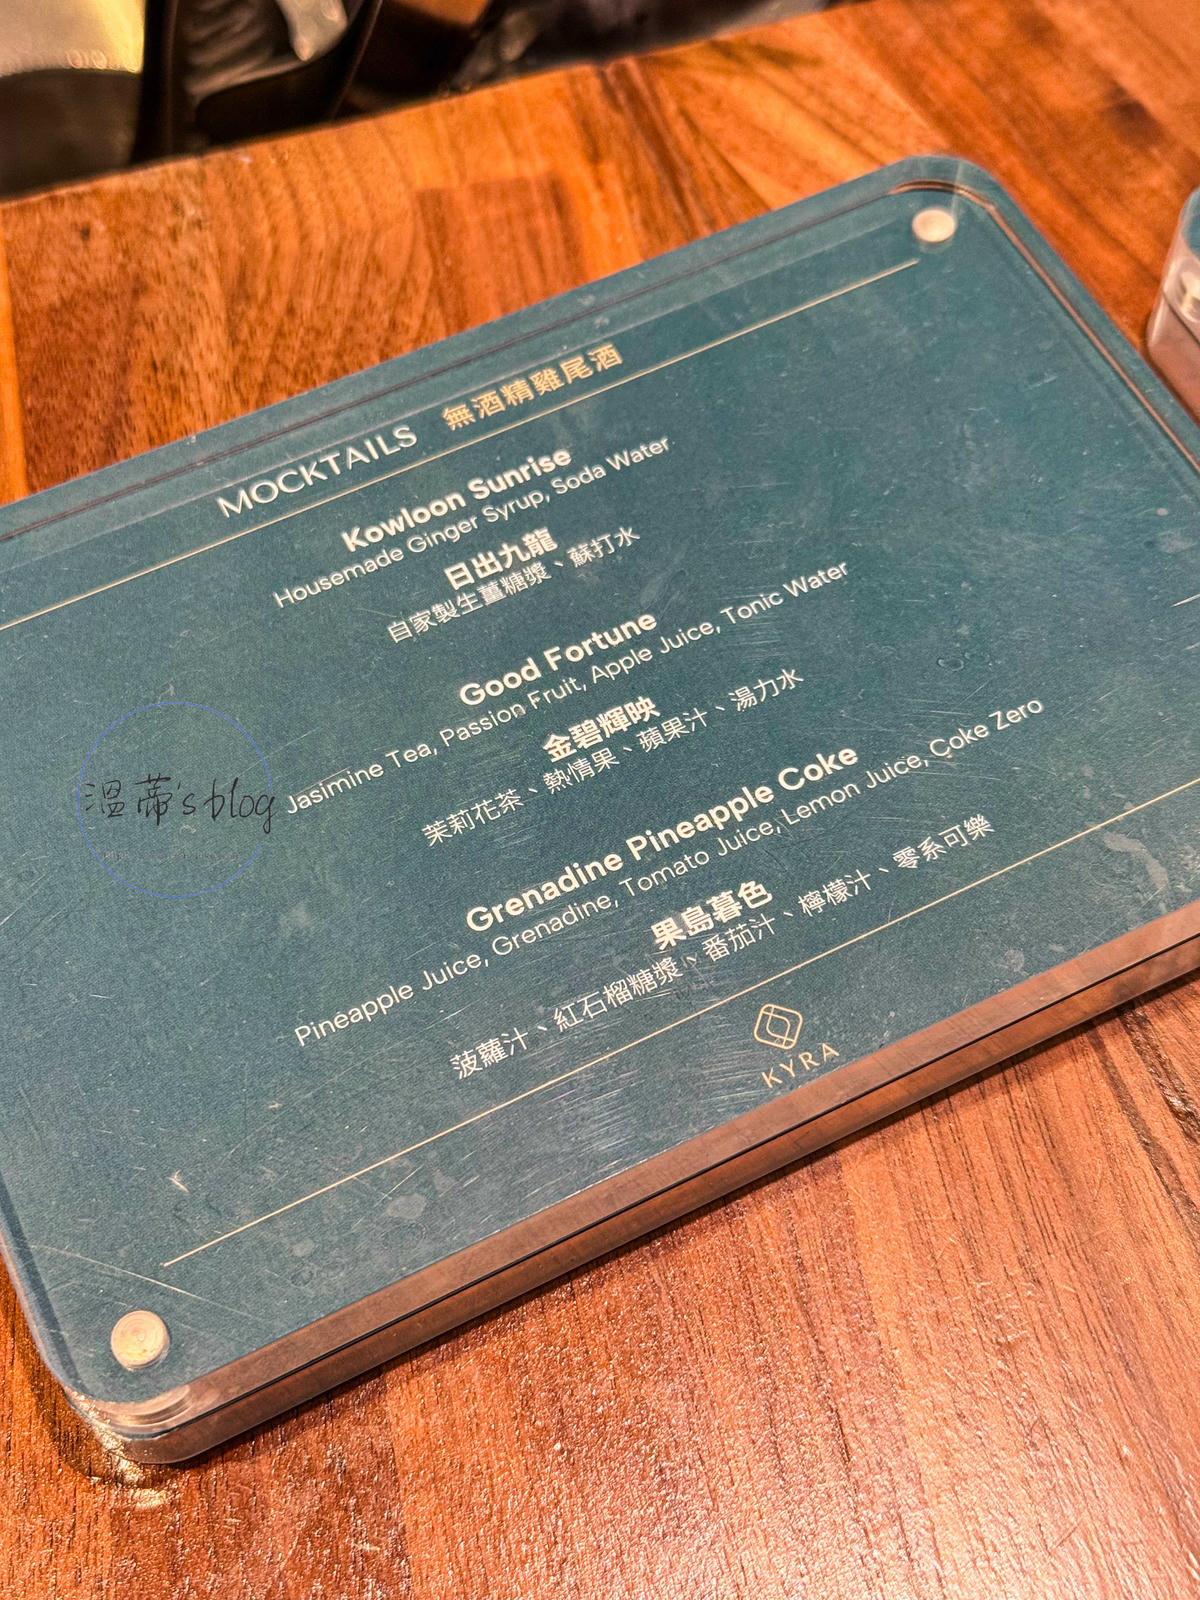 MOCKTAILS 無酒精雞尾酒
Kowloon Sunrise
Housemade Ginger Syrup, Soda Water
日出九龍
自家製生薑糖漿、蘇打水
Good Fortune
Jasimine Tea, Passion Fruit, Apple Juice, Tonic Water
金碧輝映
茉莉花茶、熱情果、蘋果汁、湯力水
Grenadine Pineapple Coke
Pineapple Juice, Grenadine, Tomato Juice, Lemon Juice, Coke Zero
果島暮色
菠蘿汁、紅石榴糖漿、番茄汁、檸檬汁、零系可樂
KYRA
溫蒂's blog